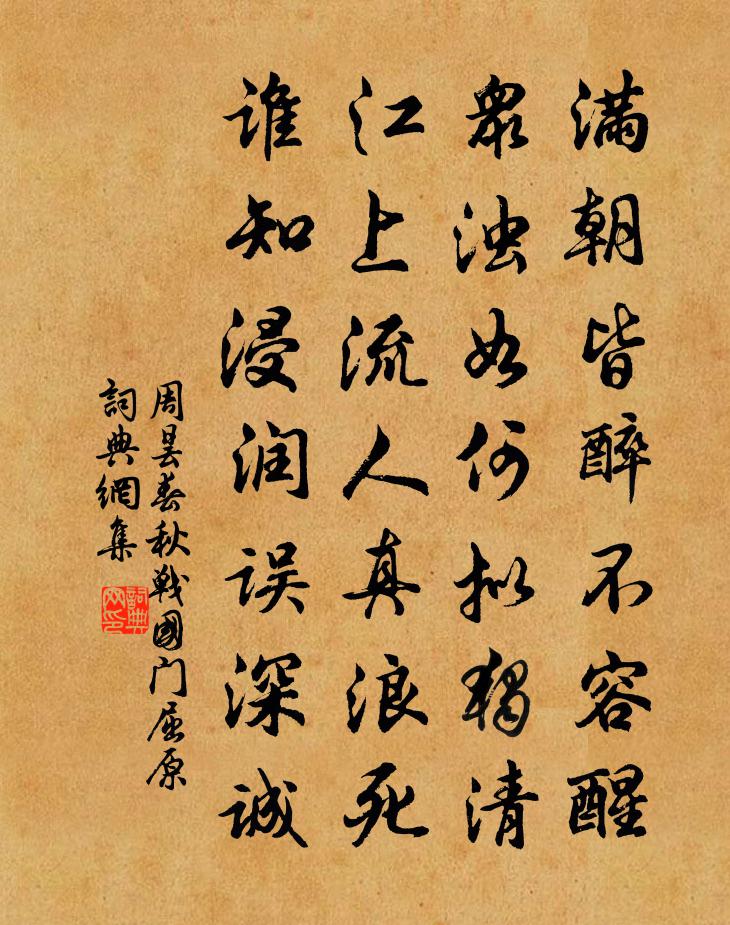 满朝皆醉不容醒
众浊如何拟独清
江上流人真浪死
谁知浸润误深诚
周昙春秋戰國门屈原
詞典網集
詞典
网印